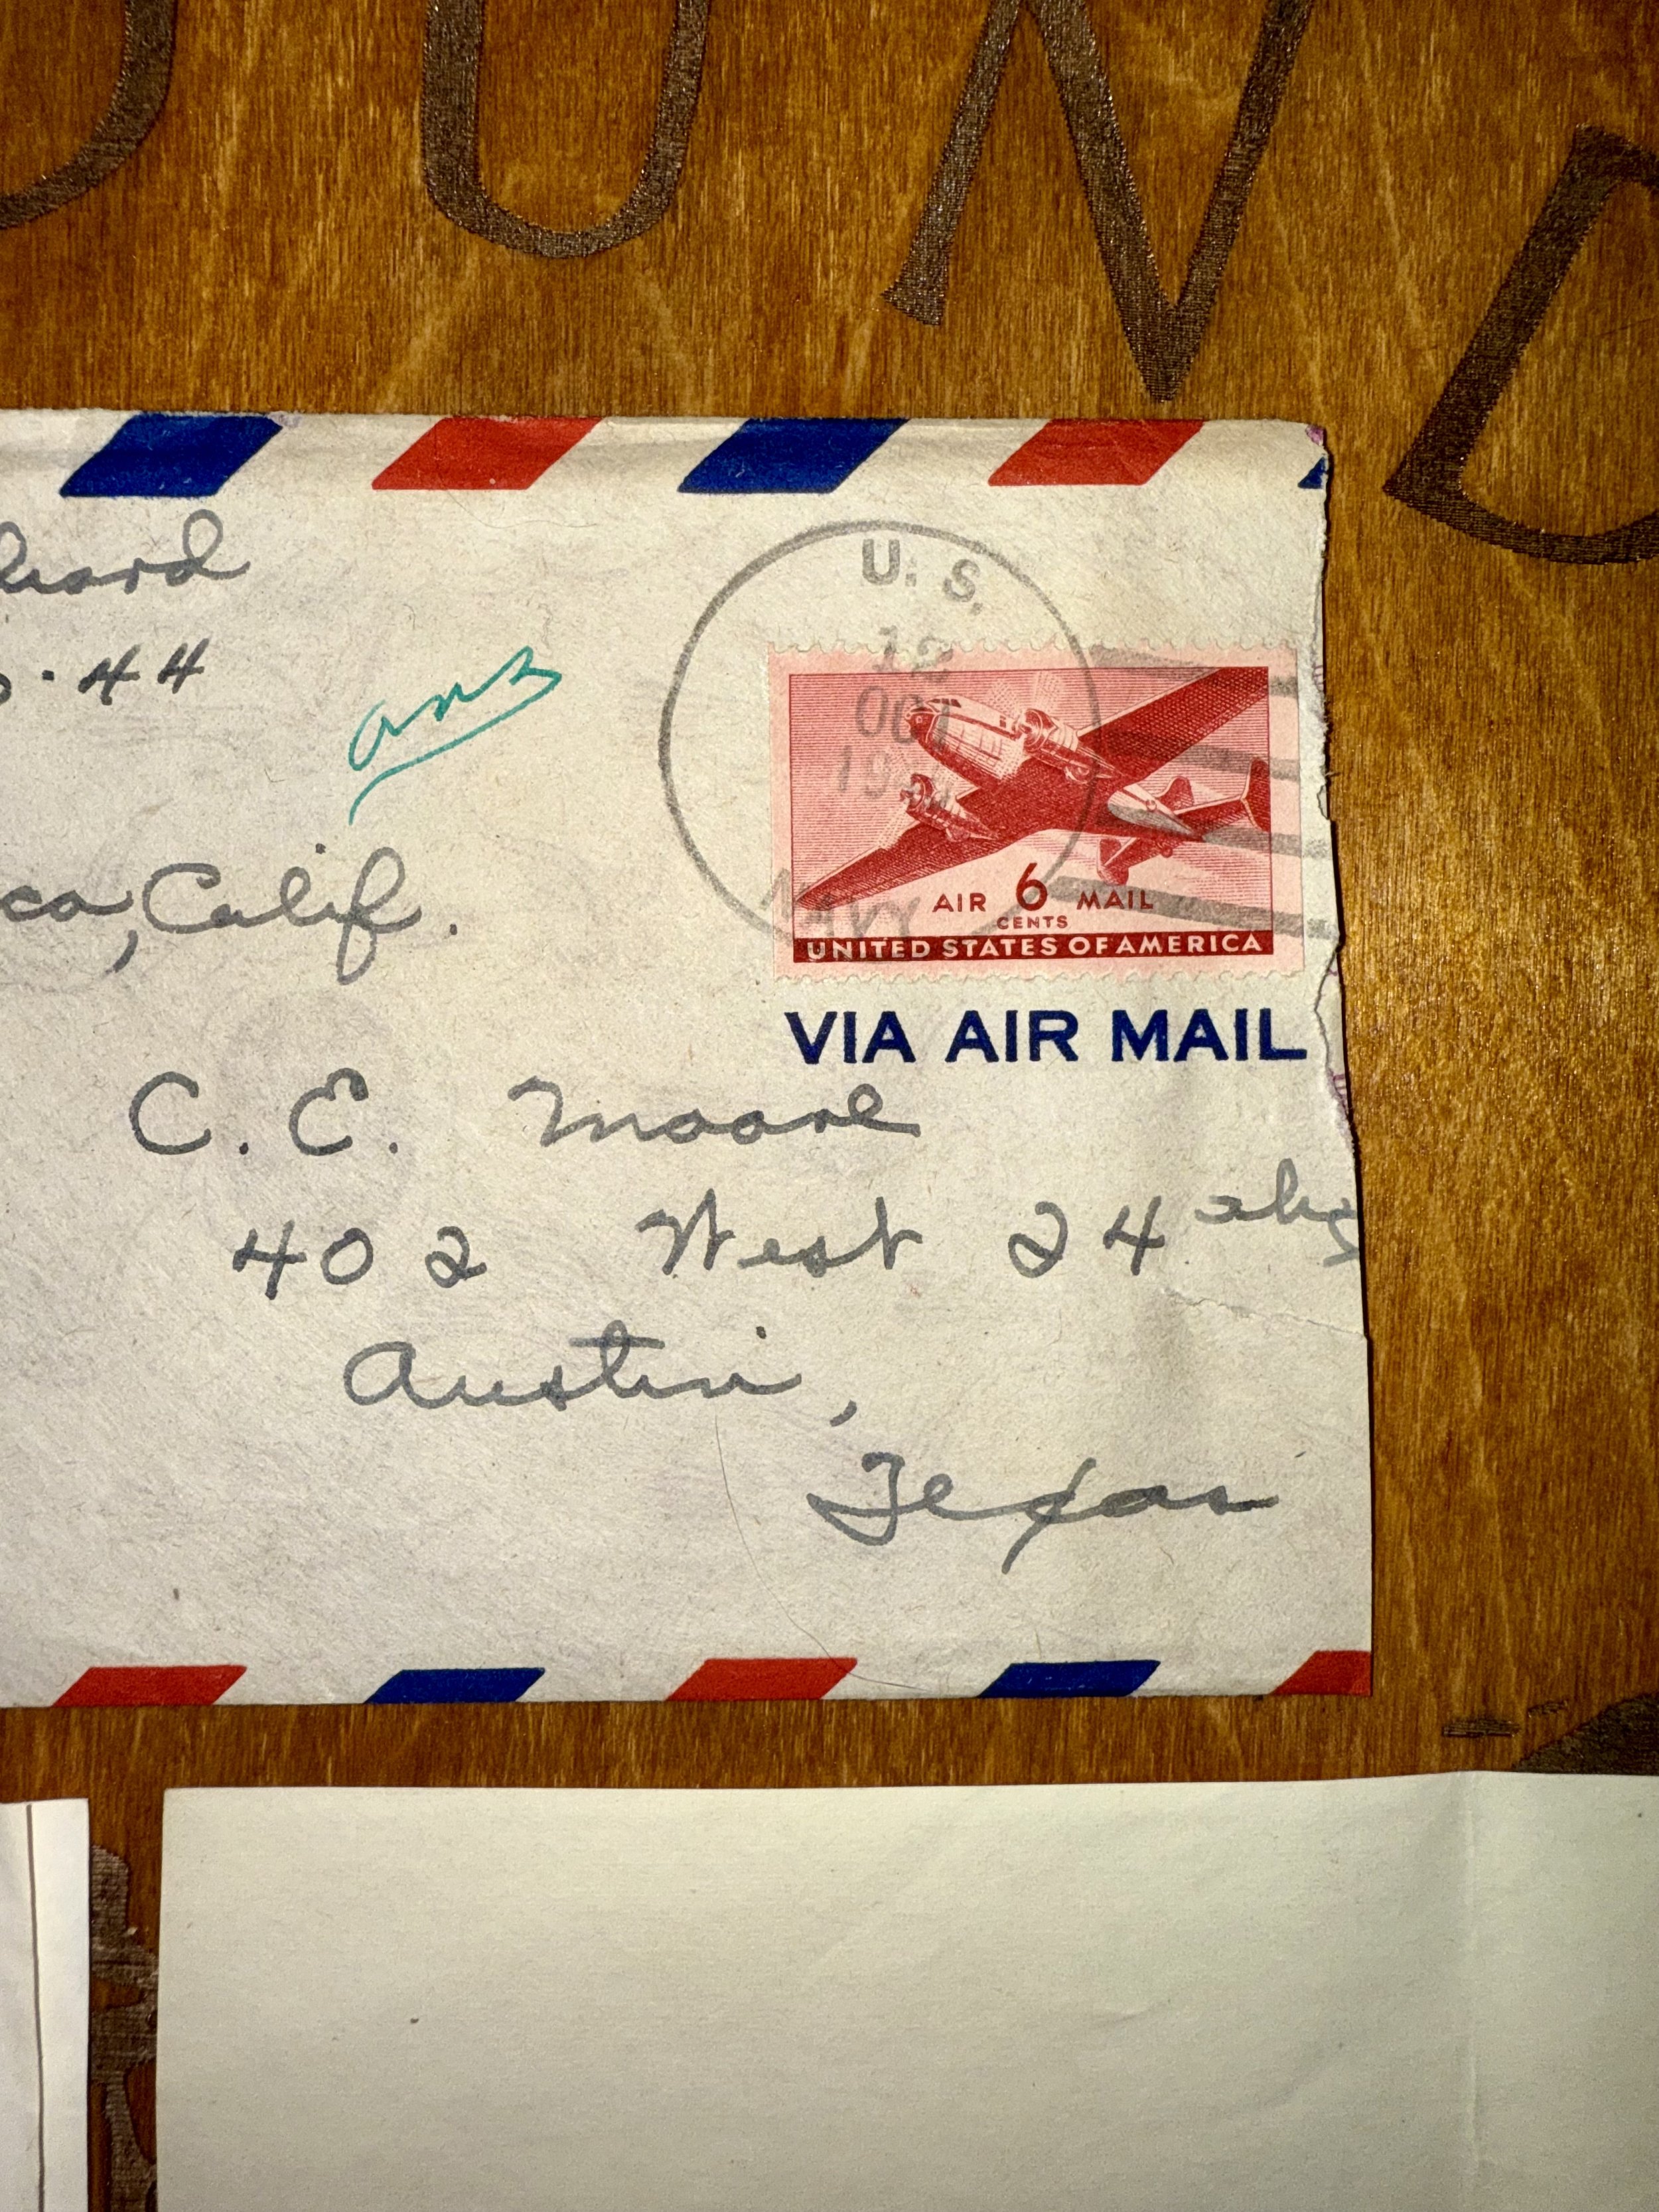 U N D
U. S.
12
OCT
NAVY
AIR 6 MAIL
CENTS
UNITED STATES OF AMERICA
VIA AIR MAIL
44
ans
Calif.
C. E. Moore
402 West 24
Austin,
Texas